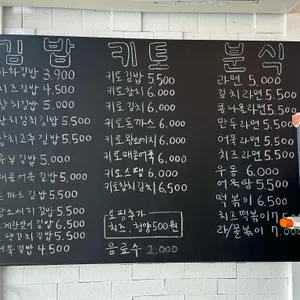 김밥
야채김밥 3,900
치즈김밥 4,500
참치김밥 5,000
참치김치김밥 5,500
참치고추김밥 5,500
유부김밥 5,000
매콤어묵김밥 5,000
돈까스김밥 5,500
왕소세지김밥 5,500
계란말이김밥 5,500
땡강치김밥 5,500
어묵김밥 4,500
키토
키토김밥 5,500
키토참치 6,000
키토김치 6,000
키토돈까스 6,000
키토왕소세지 6,000
키토매콤어묵 6,000
키토스팸 6,000
키토참치김치 6,500
토핑추가
치즈, 청양 500원
음료수 2,000
분식
라면 5,000
김치라면 5,500
콩나물라면 5,500
만두라면 5,500
어묵라면 5,500
치즈라면 5,500
우동 6,000
어묵탕 5,500
떡볶이 6,500
치즈떡볶이 7,5
라/쫄볶이 7,000